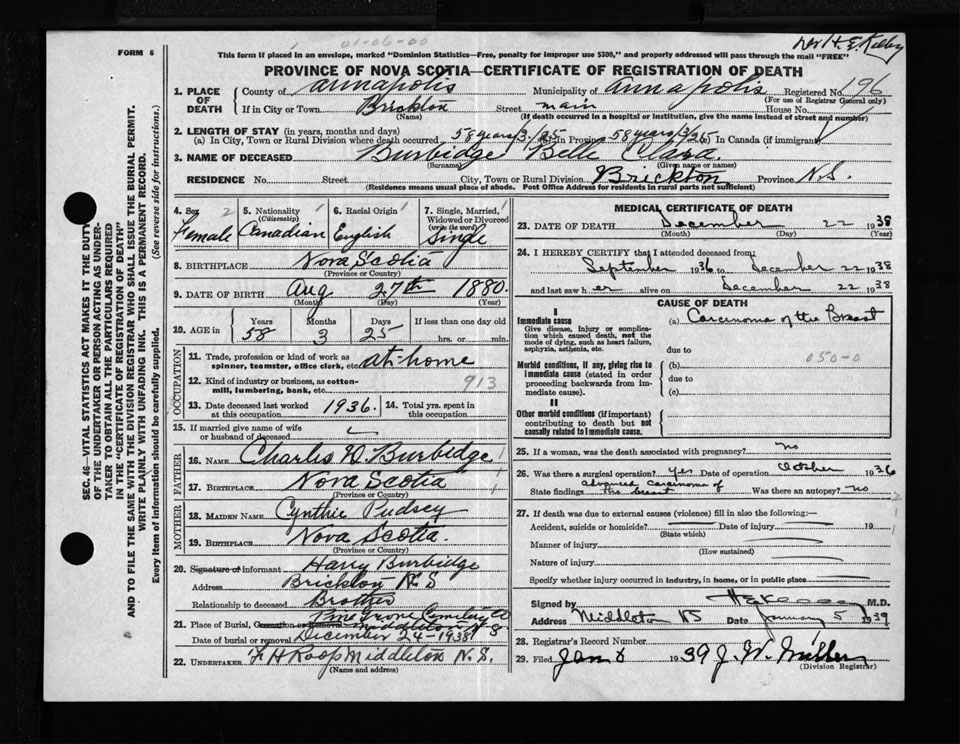 FORM 6
01-06-00
Dr H. E. Kelley
This form if placed in an envelope, marked "Dominion Statistics—Free, penalty for improper use $300," and properly addressed will pass through the mail "FREE"
PROVINCE OF NOVA SCOTIA—CERTIFICATE OF REGISTRATION OF DEATH
1. PLACE OF DEATH
County of Annapolis Municipality of Annapolis Registered No. 196
(For use of Registrar General only)
If in City or Town Brickton Street main House No.
(Name) (If death occurred in a hospital or institution, give the name instead of street and number)
2. LENGTH OF STAY (in years, months and days)
(a) In City, Town or Rural Division where death occurred 58 years/3/25 (b) in Province 58 years/3/25 (c) in Canada (if immigrant)
3. NAME OF DECEASED Burbidge Belle Clara.
(Surname) (Given name or names)
RESIDENCE No. Street City, Town or Rural Division Brickton Province N.S.
(Residence means usual place of abode. Post Office Address for residents in rural parts not sufficient)
SEC. 46—VITAL STATISTICS ACT MAKES IT THE DUTY
OF THE UNDERTAKER OR PERSON ACTING AS UNDER-
TAKER TO OBTAIN ALL THE PARTICULARS REQUIRED
IN THE "CERTIFICATE OF REGISTRATION OF DEATH"
AND TO FILE THE SAME WITH THE DIVISION REGISTRAR WHO SHALL ISSUE THE BURIAL PERMIT.
WRITE PLAINLY WITH UNFADING INK. THIS IS A PERMANENT RECORD.
Every item of information should be carefully supplied. (See reverse side for instructions.)
4. Sex 2 Female
5. Nationality (Citizenship) 1 Canadian
6. Racial Origin 1 English
7. Single, Married, Widowed or Divorced (write the word) 1 Single
8. BIRTHPLACE Nova Scotia
(Province or Country)
9. DATE OF BIRTH Aug 27th 1880.
(Month) (Day) (Year)
10. AGE in Years 58 Months 3 Days 25 If less than one day old hrs. or min.
OCCUPATION
11. Trade, profession or kind of work as spinner, teamster, office clerk, etc. at-home
12. Kind of industry or business, as cotton-mill, lumbering, bank, etc. 913
13. Date deceased last worked at this occupation 1936. 14. Total yrs. spent in this occupation
15. If married give name of wife or husband of deceased
FATHER
16. NAME Charles W Burbidge
17. BIRTHPLACE Nova Scotia
(Province or Country)
MOTHER
18. MAIDEN NAME Cynthie Pudsey
19. BIRTHPLACE Nova Scotia.
(Province or Country)
20. Signature of informant Harry Burbidge
Address Brickton N S
Relationship to deceased Brother
21. Place of Burial, Cremation or Removal Pine Grove Cemetery
Middleton N S
Date of burial or removal December 24-1938
22. UNDERTAKER F. H Roop Middleton N. S.
(Name and address)
MEDICAL CERTIFICATE OF DEATH
23. DATE OF DEATH December 22 1938
(Month) (Day) (Year)
24. I HEREBY CERTIFY that I attended deceased from:
September 1936 to December 22 1938
and last saw h er alive on December 22 1938
CAUSE OF DEATH
I
Immediate cause
Give disease, injury or complication which caused death, not the mode of dying, such as heart failure, asphyxia, asthenia, etc.
(a) Carcinoma of the Breast
due to
050-0
Morbid conditions, if any, giving rise to immediate cause (stated in order proceeding backwards from immediate cause).
(b)
due to
(c)
II
Other morbid conditions (if important) contributing to death but not causally related to immediate cause.
25. If a woman, was the death associated with pregnancy? no
26. Was there a surgical operation? yes Date of operation October 1936
State findings Advanced Carcinoma of the breast Was there an autopsy? no
27. If death was due to external causes (violence) fill in also the following:—
Accident, suicide or homicide? Date of injury 19
(State which)
Manner of injury
(How sustained)
Nature of injury
Specify whether injury occurred in industry, in home, or in public place
Signed by H E Kelley M.D.
Address Middleton NS Date January 5 1939
28. Registrar's Record Number
29. Filed Jan 8 1939 J. W. Miller
(Division Registrar)